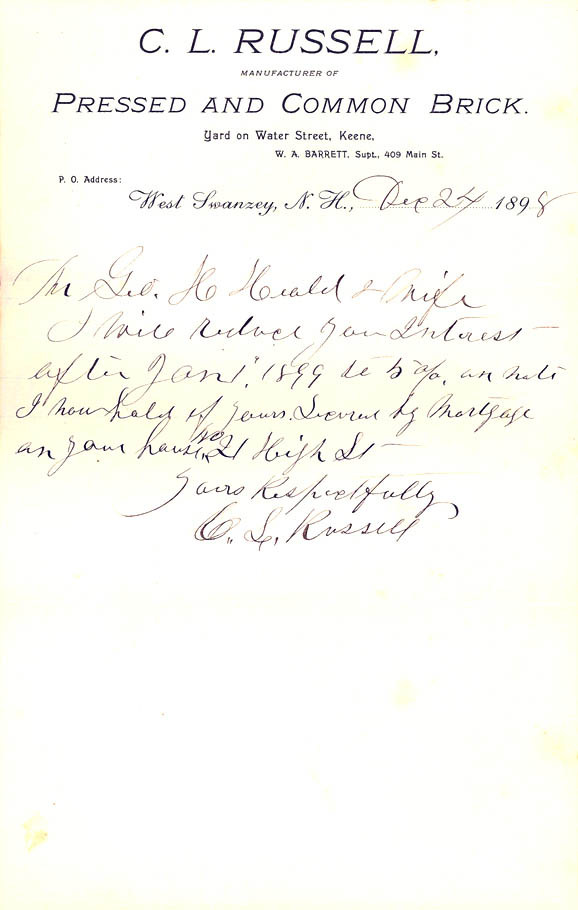 C. L. RUSSELL,
MANUFACTURER OF
PRESSED AND COMMON BRICK.
Yard on Water Street, Keene,
W. A. BARRETT, Supt., 409 Main St.
P. O. Address:
West Swanzey, N. H., Dec 24 1898
Mr Geo. H Heald & Wife
I will reduce your Interest
after Jan 1", 1899 to 5 %, on note
I now hold of yours. Secured by Mortgage
on your house, No 21 High St
Yours Respectfully
C. L. Russell